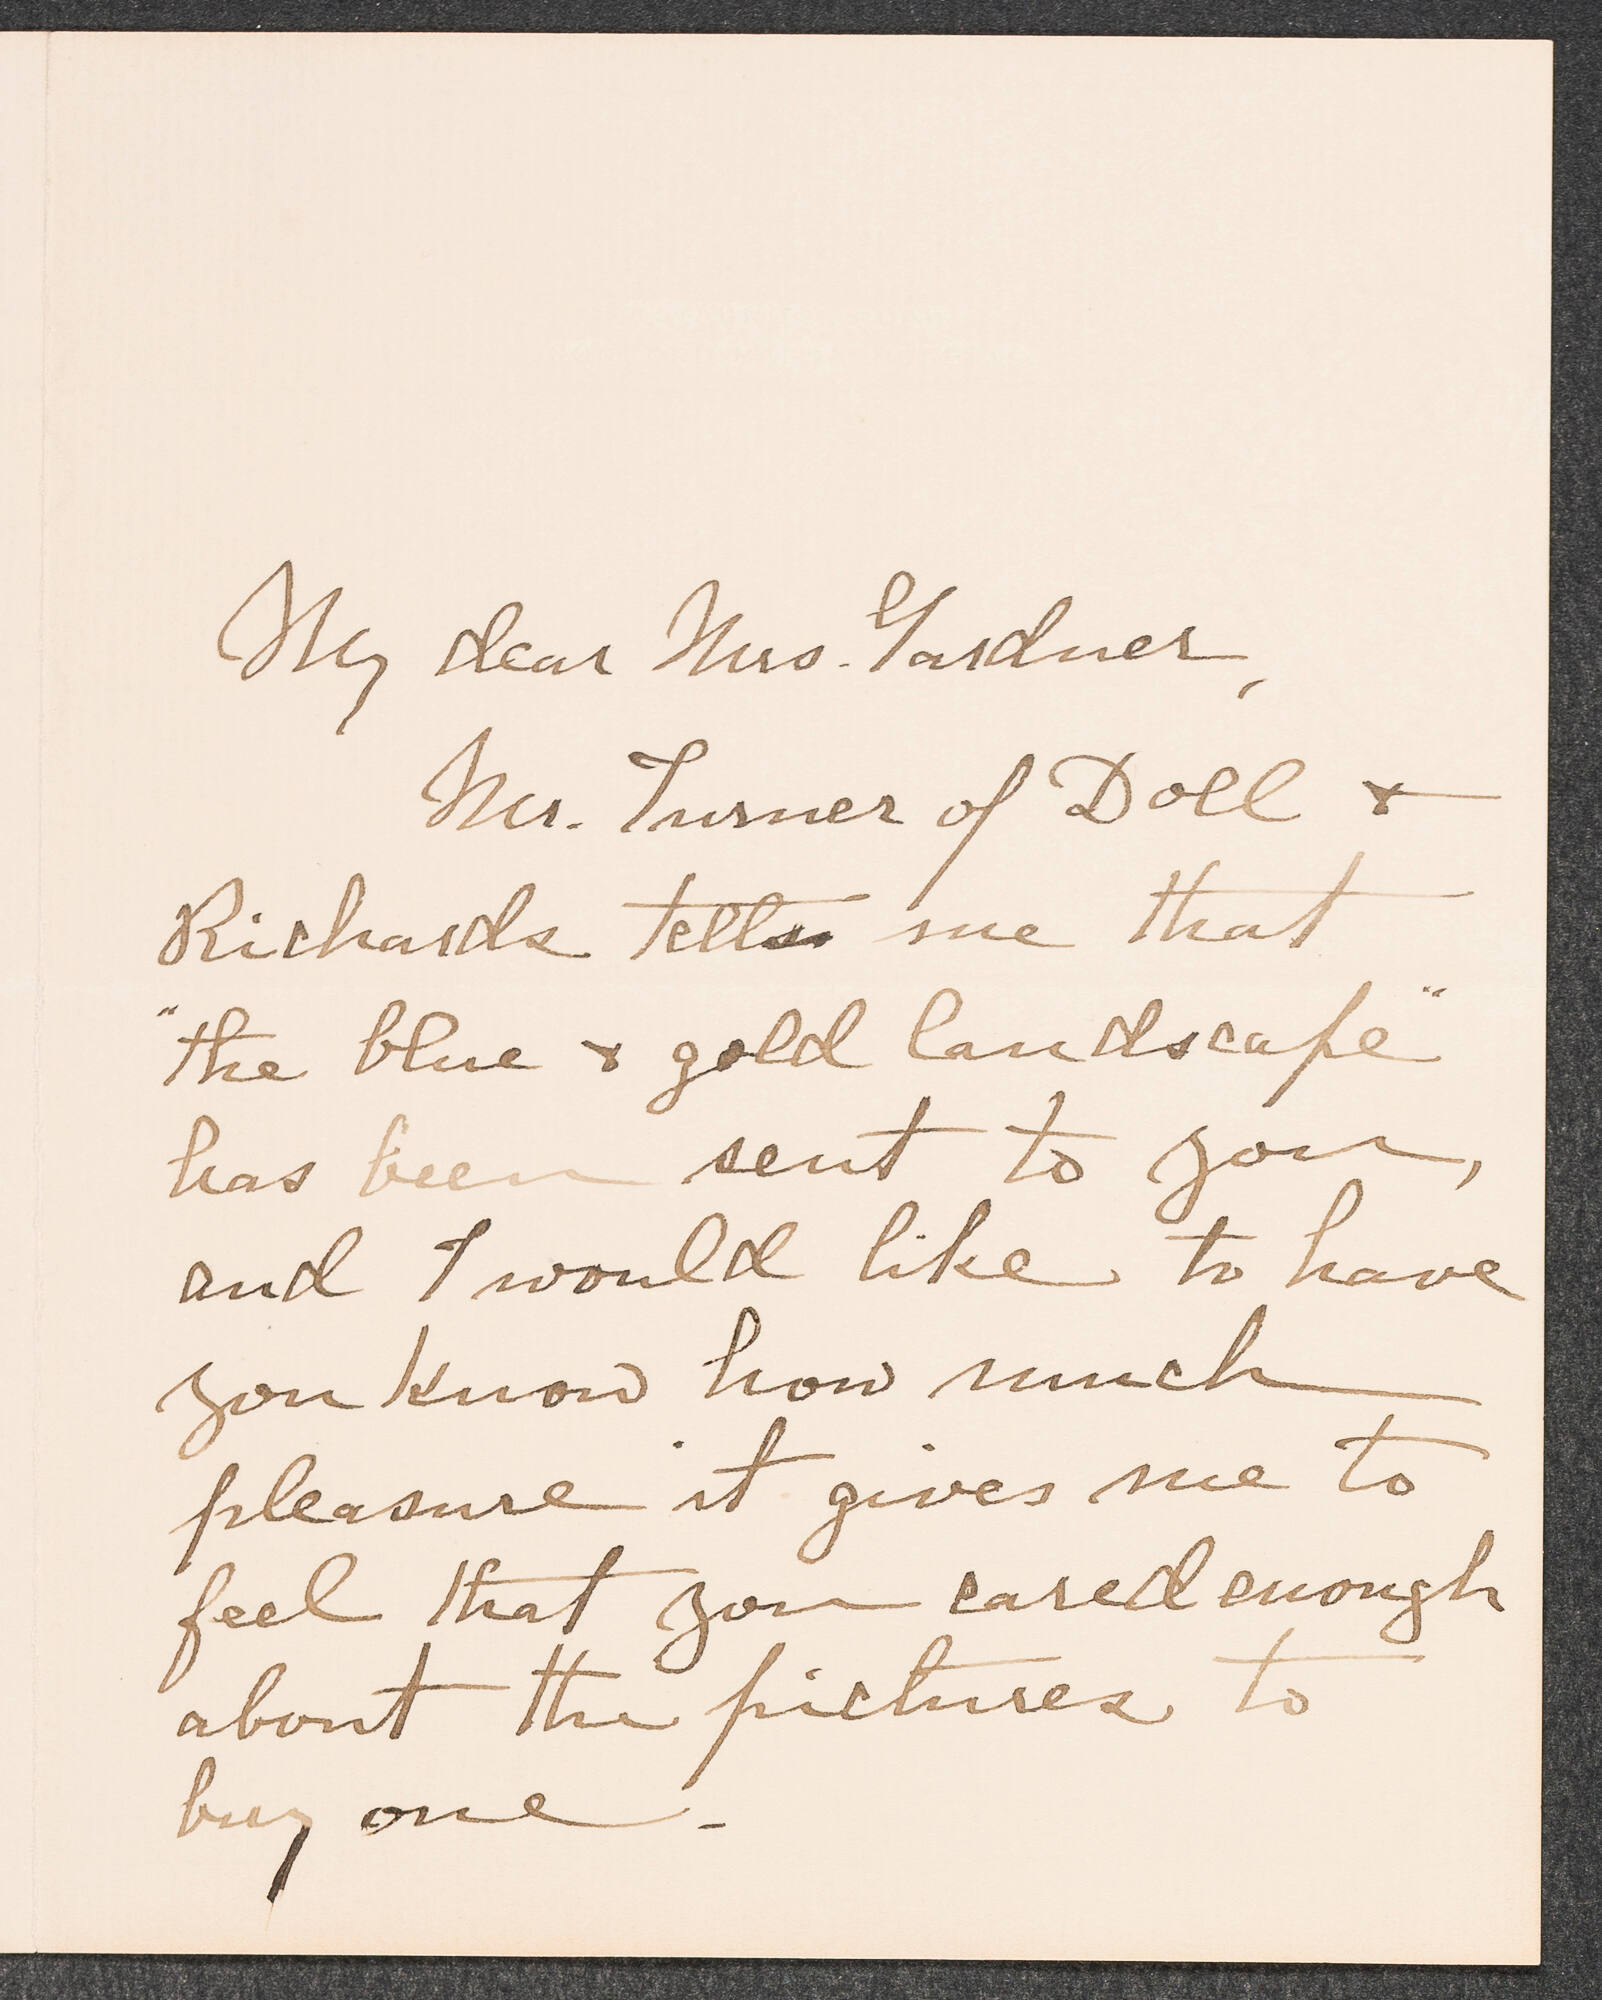 My dear Mrs. Gardner,
Mr. Turner of Doll &
Richards tells me that
"the blue & gold landscape"
has been sent to you,
and I would like to have
you know how much
pleasure it gives me to
feel that you cared enough
about the pictures to
buy one.